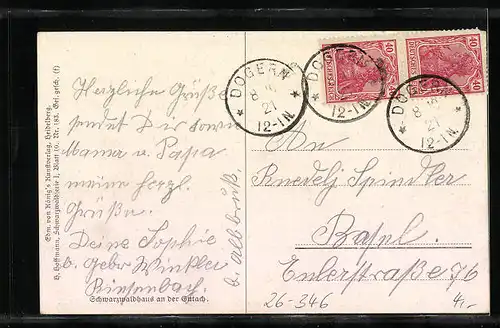 Edm. von König's Kunstverlag, Heidelberg.
H. Hoffmann, Schwarzwaldserie I, Blatt 10. Nr. 183. Ges. gesch. (f)
Herzliche Grüße
sendet Dir sowie
Mama u. Papa
meine herzl.
Grüße.
Deine Sophie
b. Gebr Winkler
Riesenbach.
b. Albbruk.
Schwarzwaldhaus an der Gutach.
DOGERN
8
21
12-1N.
DOGERN
21
12-1N.
DOGERN
8
21
12-1N.
40
40
40
An
Spindler
Basel.
Eulerstraße 76
26-346
4,-